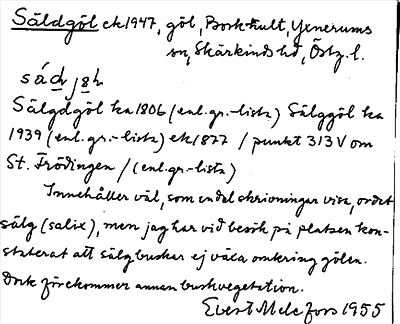 Säldgöl ek 1947, göl, Borkhult, Yxnerums
sn, Skärkinds hd, Östg. l.
Sälgdgöl ka 1806 (enl. gr.-lista) Sälggöl ka
1939 (enl. gr.-lista) ek 1877 / punkt 313 V om
St. Frödingen / (enl. gr-lista)
Innehåller väl, som en del skrivningar visa, ordet
sälg (salix), men jag har vid besök på platsen kon-
staterat att sälgbuskar ej växa omkring gölen.
Dock förekommer annan buskvegetation.
Evert Melefors 1955